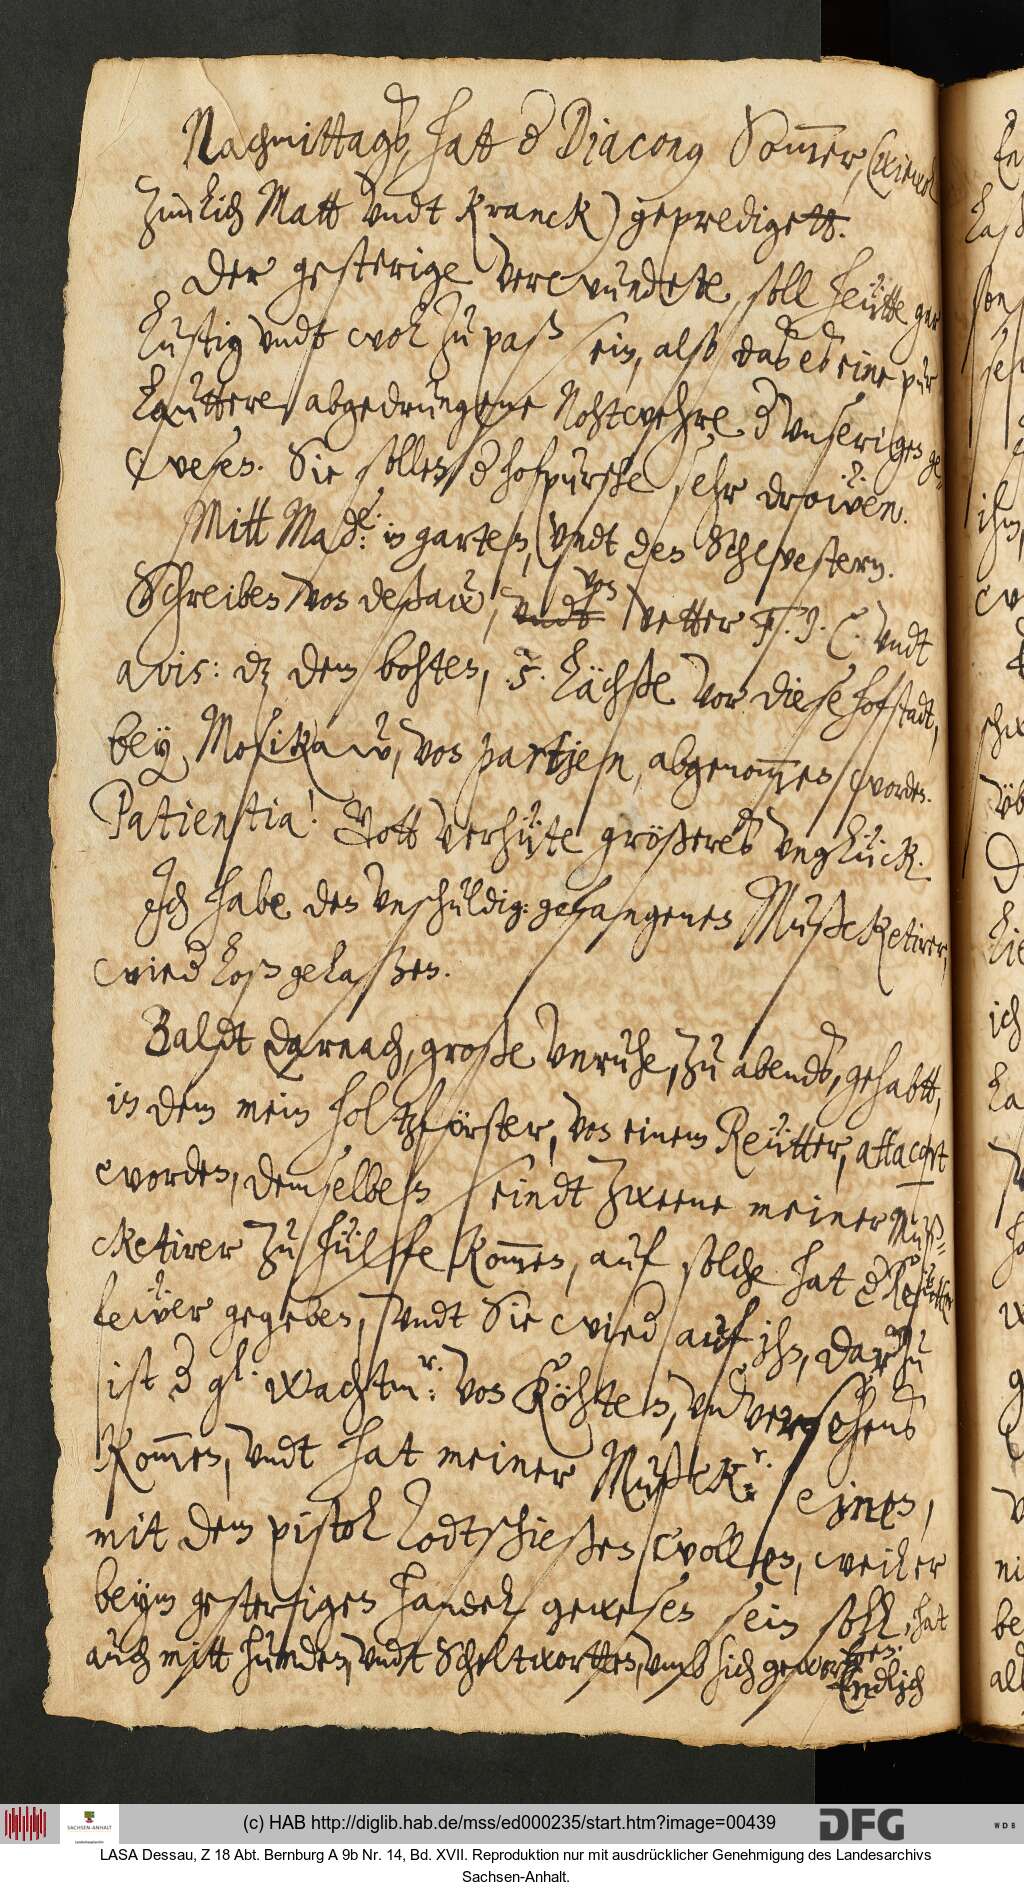 Nachmittagß hat d Diacong Sommer, (wiewol
zimlich Matt vndt Kranck) gepredigett.
Der gesterige verwundete, soll heütte gar
lustig vndt wol zu paß sein, also daß es eine pur
lauttere abgedrungene Nohtwehre d vnserigen ge-
wesen. Sie sollen d hofpursche sehr droẅen.
Mitt Mad:e in garten, vndt den Schwestern.
Schreiben von Deßaw, vndt von Vetter F. J. C. vndt
avis: dz dem bohten, .5. Lächße vor diese hofstadt,
bey Mosikaw, von partien, abgenommen worden.
Patientia! Gott verhüte größeres vnglück.
Ich habe den vnschuldig: gefangenen Mußcketirer,
wied loß gelaßen.
Baldt darnach, große vnruhe, zu abends, gehabtt,
in dem mein holtzförster, von einem Reütter, attacqirt
worden, demselben seindt zweene meiner Muß-
cketirer zu hülfe kommen, auf solche hat d Reütter
feẅer gegeben, vndt Sie wied auf ihn, darzu
ist d gl. wachtm:r von Köhten, vnversehens
kommen, vndt hat meiner Mußck:r einen,
mit dem pistol todtschießen wollen, weil er
beym gestertigen handel gewesen sein soll, hat
auch mitt hunden, vndt Scheltworten, vmb sich geworfen.
Endlich
(c) HAB http://diglib.hab.de/mss/ed000235/start.htm?image=00439
SACHSEN-ANHALT
DFG
WDB
LASA Dessau, Z 18 Abt. Bernburg A 9b Nr. 14, Bd. XVII. Reproduktion nur mit ausdrücklicher Genehmigung des Landesarchivs
Sachsen-Anhalt.